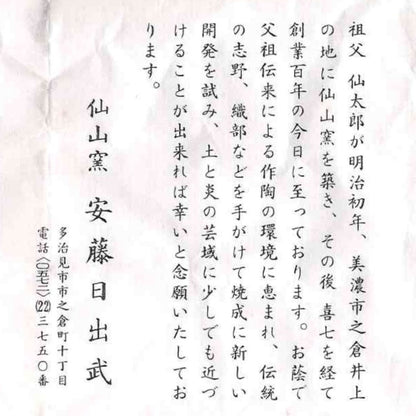 祖父 仙太郎が明治初年、美濃市之倉井上
の地に仙山窯を築き、その後 喜七を経て
創業百年の今日に至っております。お蔭で
父祖伝来による作陶の環境に恵まれ、伝統
の志野、織部などを手がけて焼成に新しい
開発を試み、土と炎の芸域に少しでも近づ
けることが出来れば幸いと念願いたしてお
ります。
仙山窯 安藤日出武
多治見市市之倉町十丁目
電話〈〇五七二〉(22)三七五〇番